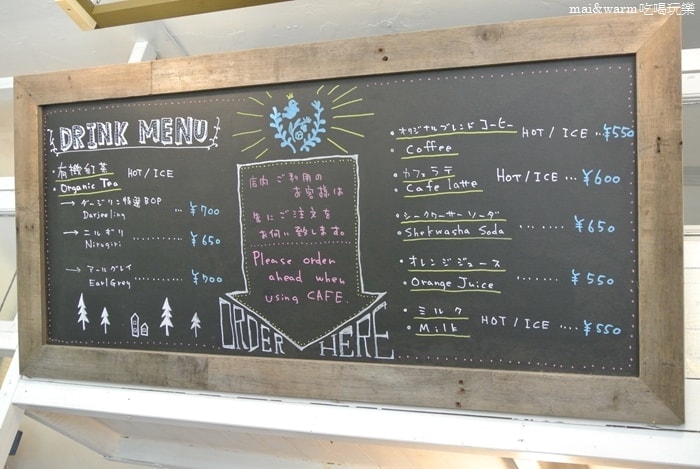 mai&warm吃喝玩樂
DRINK MENU
・有機紅茶 HOT/ICE
・Organic Tea
→ダージリン特選BOP
Darjeeling ... ¥700
→ニルギリ
Nirugiri ......... ¥650
→アールグレイ
Earl Grey ......... ¥700
店内ご利用の
お客様は
先にご注文を
お伺い致します。
Please order
ahead when
using CAFE.
ORDER HERE
・オリジナルブレンドコーヒー HOT/ICE ... ¥550
・Coffee
・カフェラテ HOT/ICE ... ¥600
・Cafe latte
・シークワーサーソーダ
・Shekwasha Soda ..... ¥650
・オレンジジュース
・Orange Juice ..... ¥550
・ミルク HOT/ICE .... ¥550
・Milk